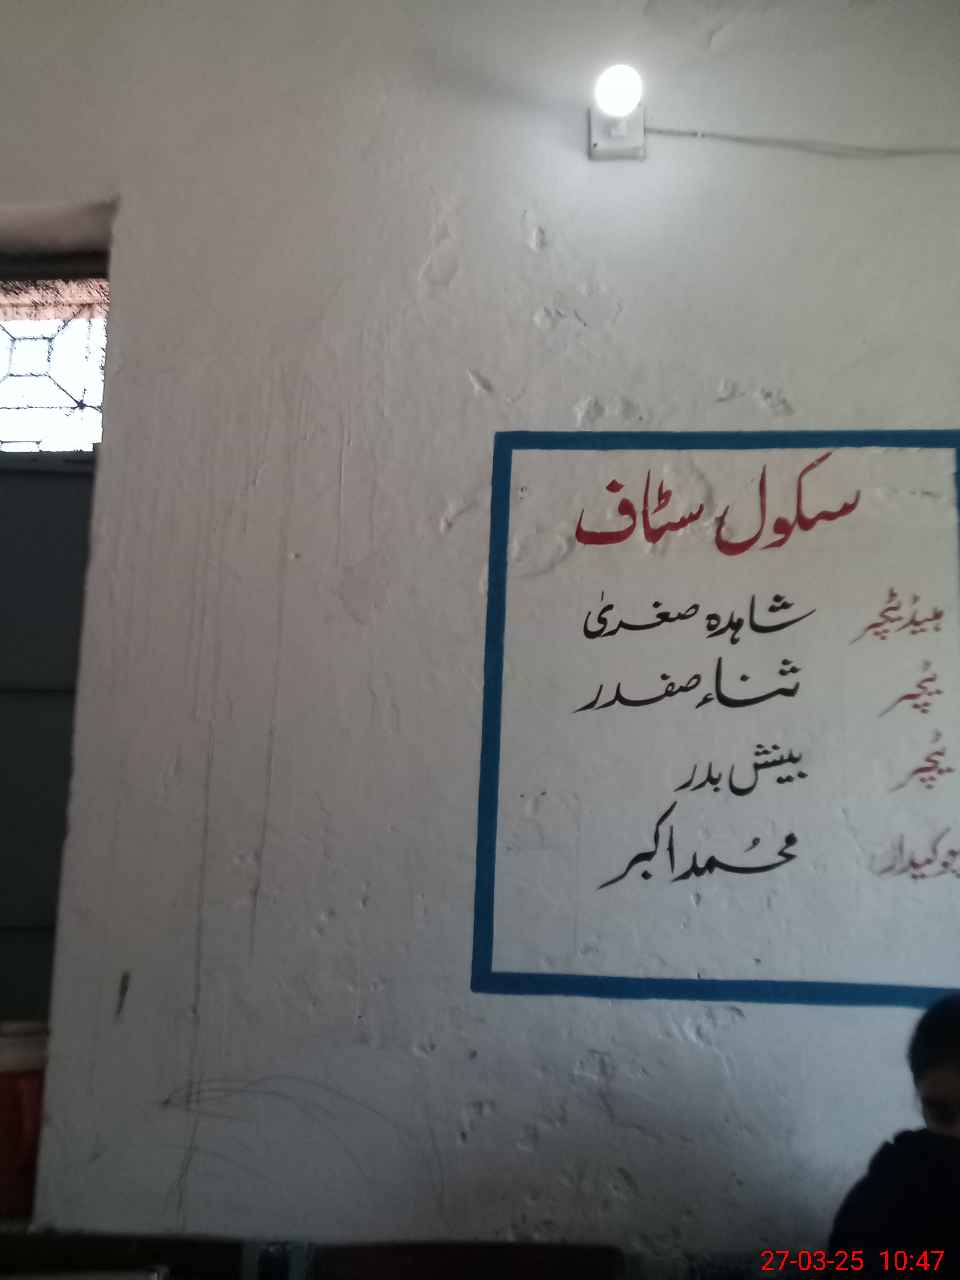 سکول سٹاف
ہیڈ ٹیچر شاہدہ صغریٰ
ٹیچر ثناء صفدر
ٹیچر بینش بدر
چوکیدار محمد اکبر
27-03-25 10:47